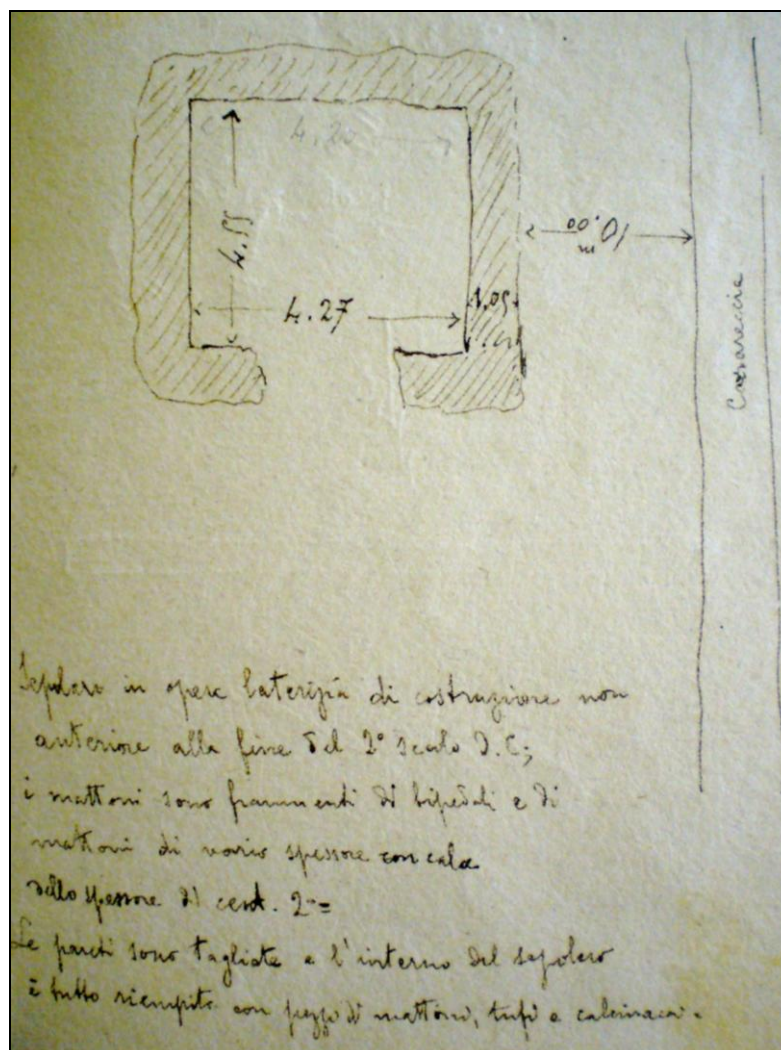 4.20
4.55
m 10.00
4.27
1.05
Sepolcro in opera laterizia di costruzione non
anteriore alla fine del 2° secolo D.C;
i mattoni sono frammenti di bipedali e di
mattoni di vario spessore con calce
dello spessore di cent. 2 =
Le pareti sono tagliate e l'interno del sepolcro
è tutto riempito con pezzi di mattoni, tufi e calcinacci.